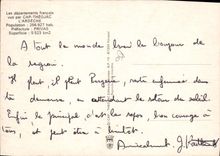 Les départements français
vus par CAP-THEOJAC
L'ARDECHE
Population : 256.927 hab.
Préfecture : PRIVAS
Superficie : 5 523 km2
A tout le monde voici le bonjour de
la région.
Il pleut, il pleut Bergère, reste enfermée dans
ta demeure, en attendant le retour du soleil.
Enfin le principal, c'est les repos, bon courage à
tous, et peut être à bientôt.
Amicalement J.